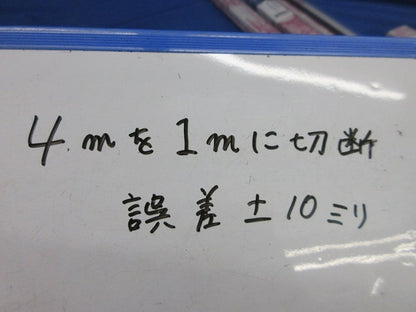 4mを1mに切断
誤差±10ミリ